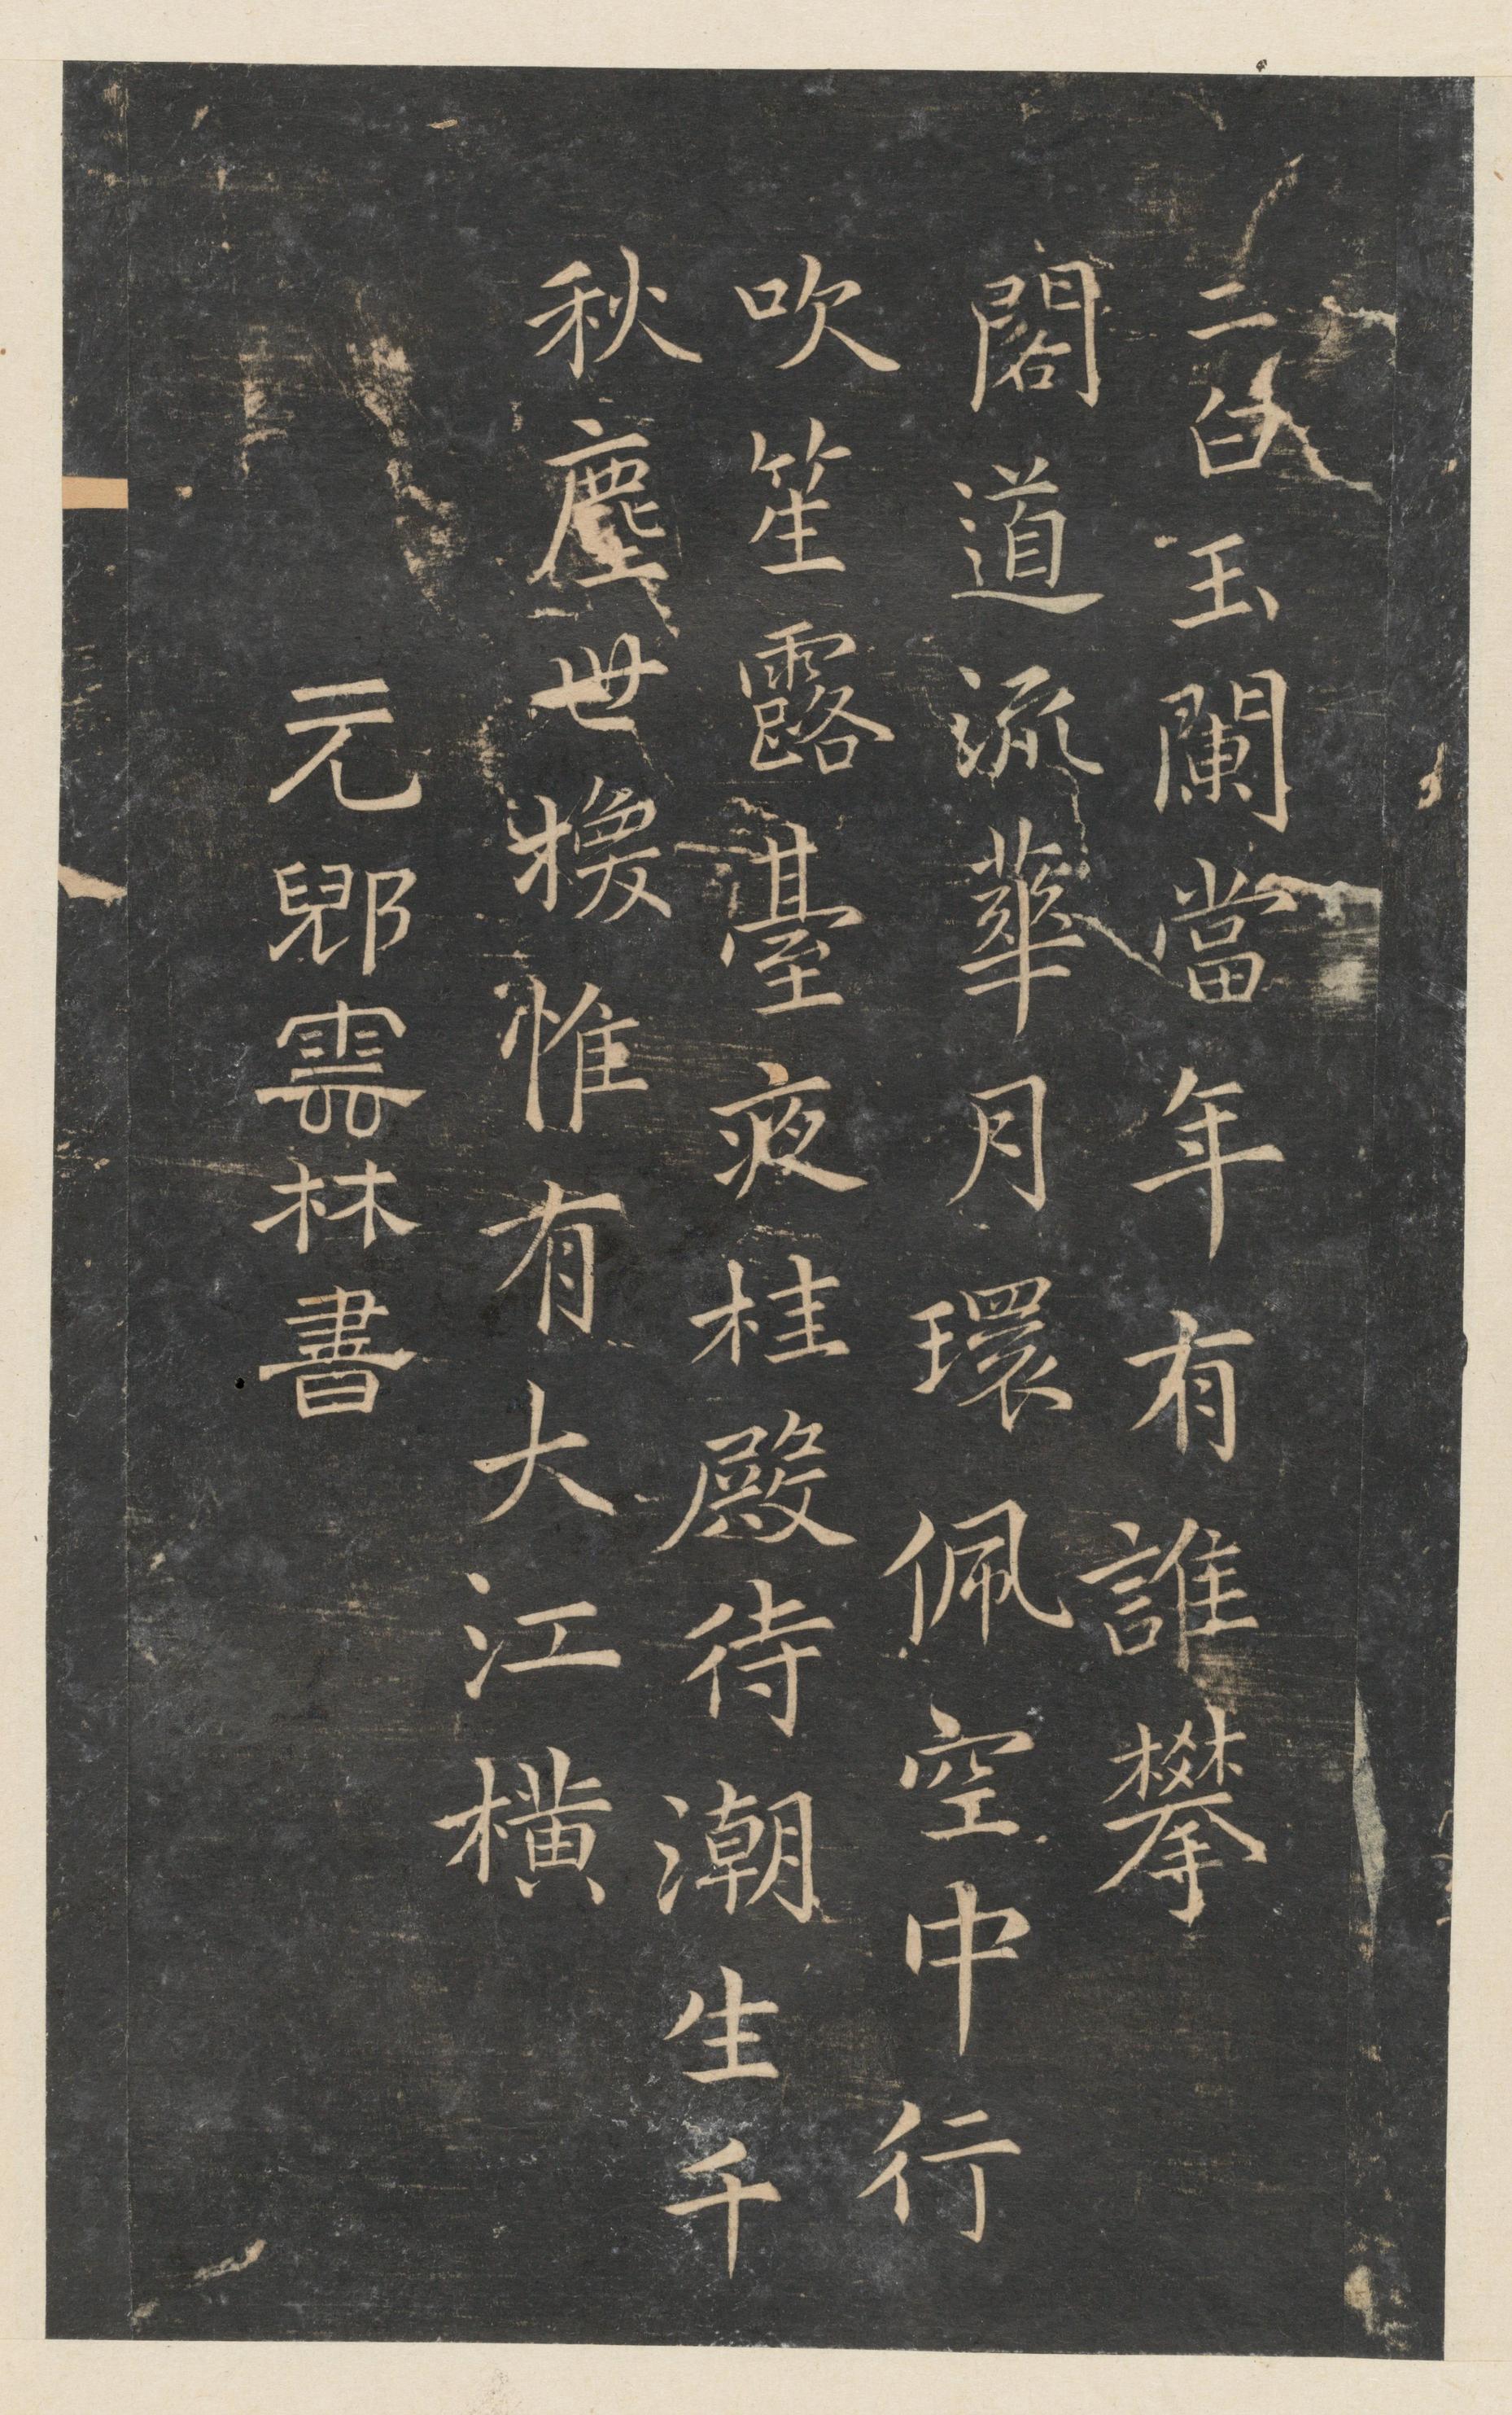 二白玉闌當年有誰攀
閣道流華月環佩空中行
吹笙露臺夜桂殿待潮生千
秋塵世換惟有大江橫
元郳雲林書